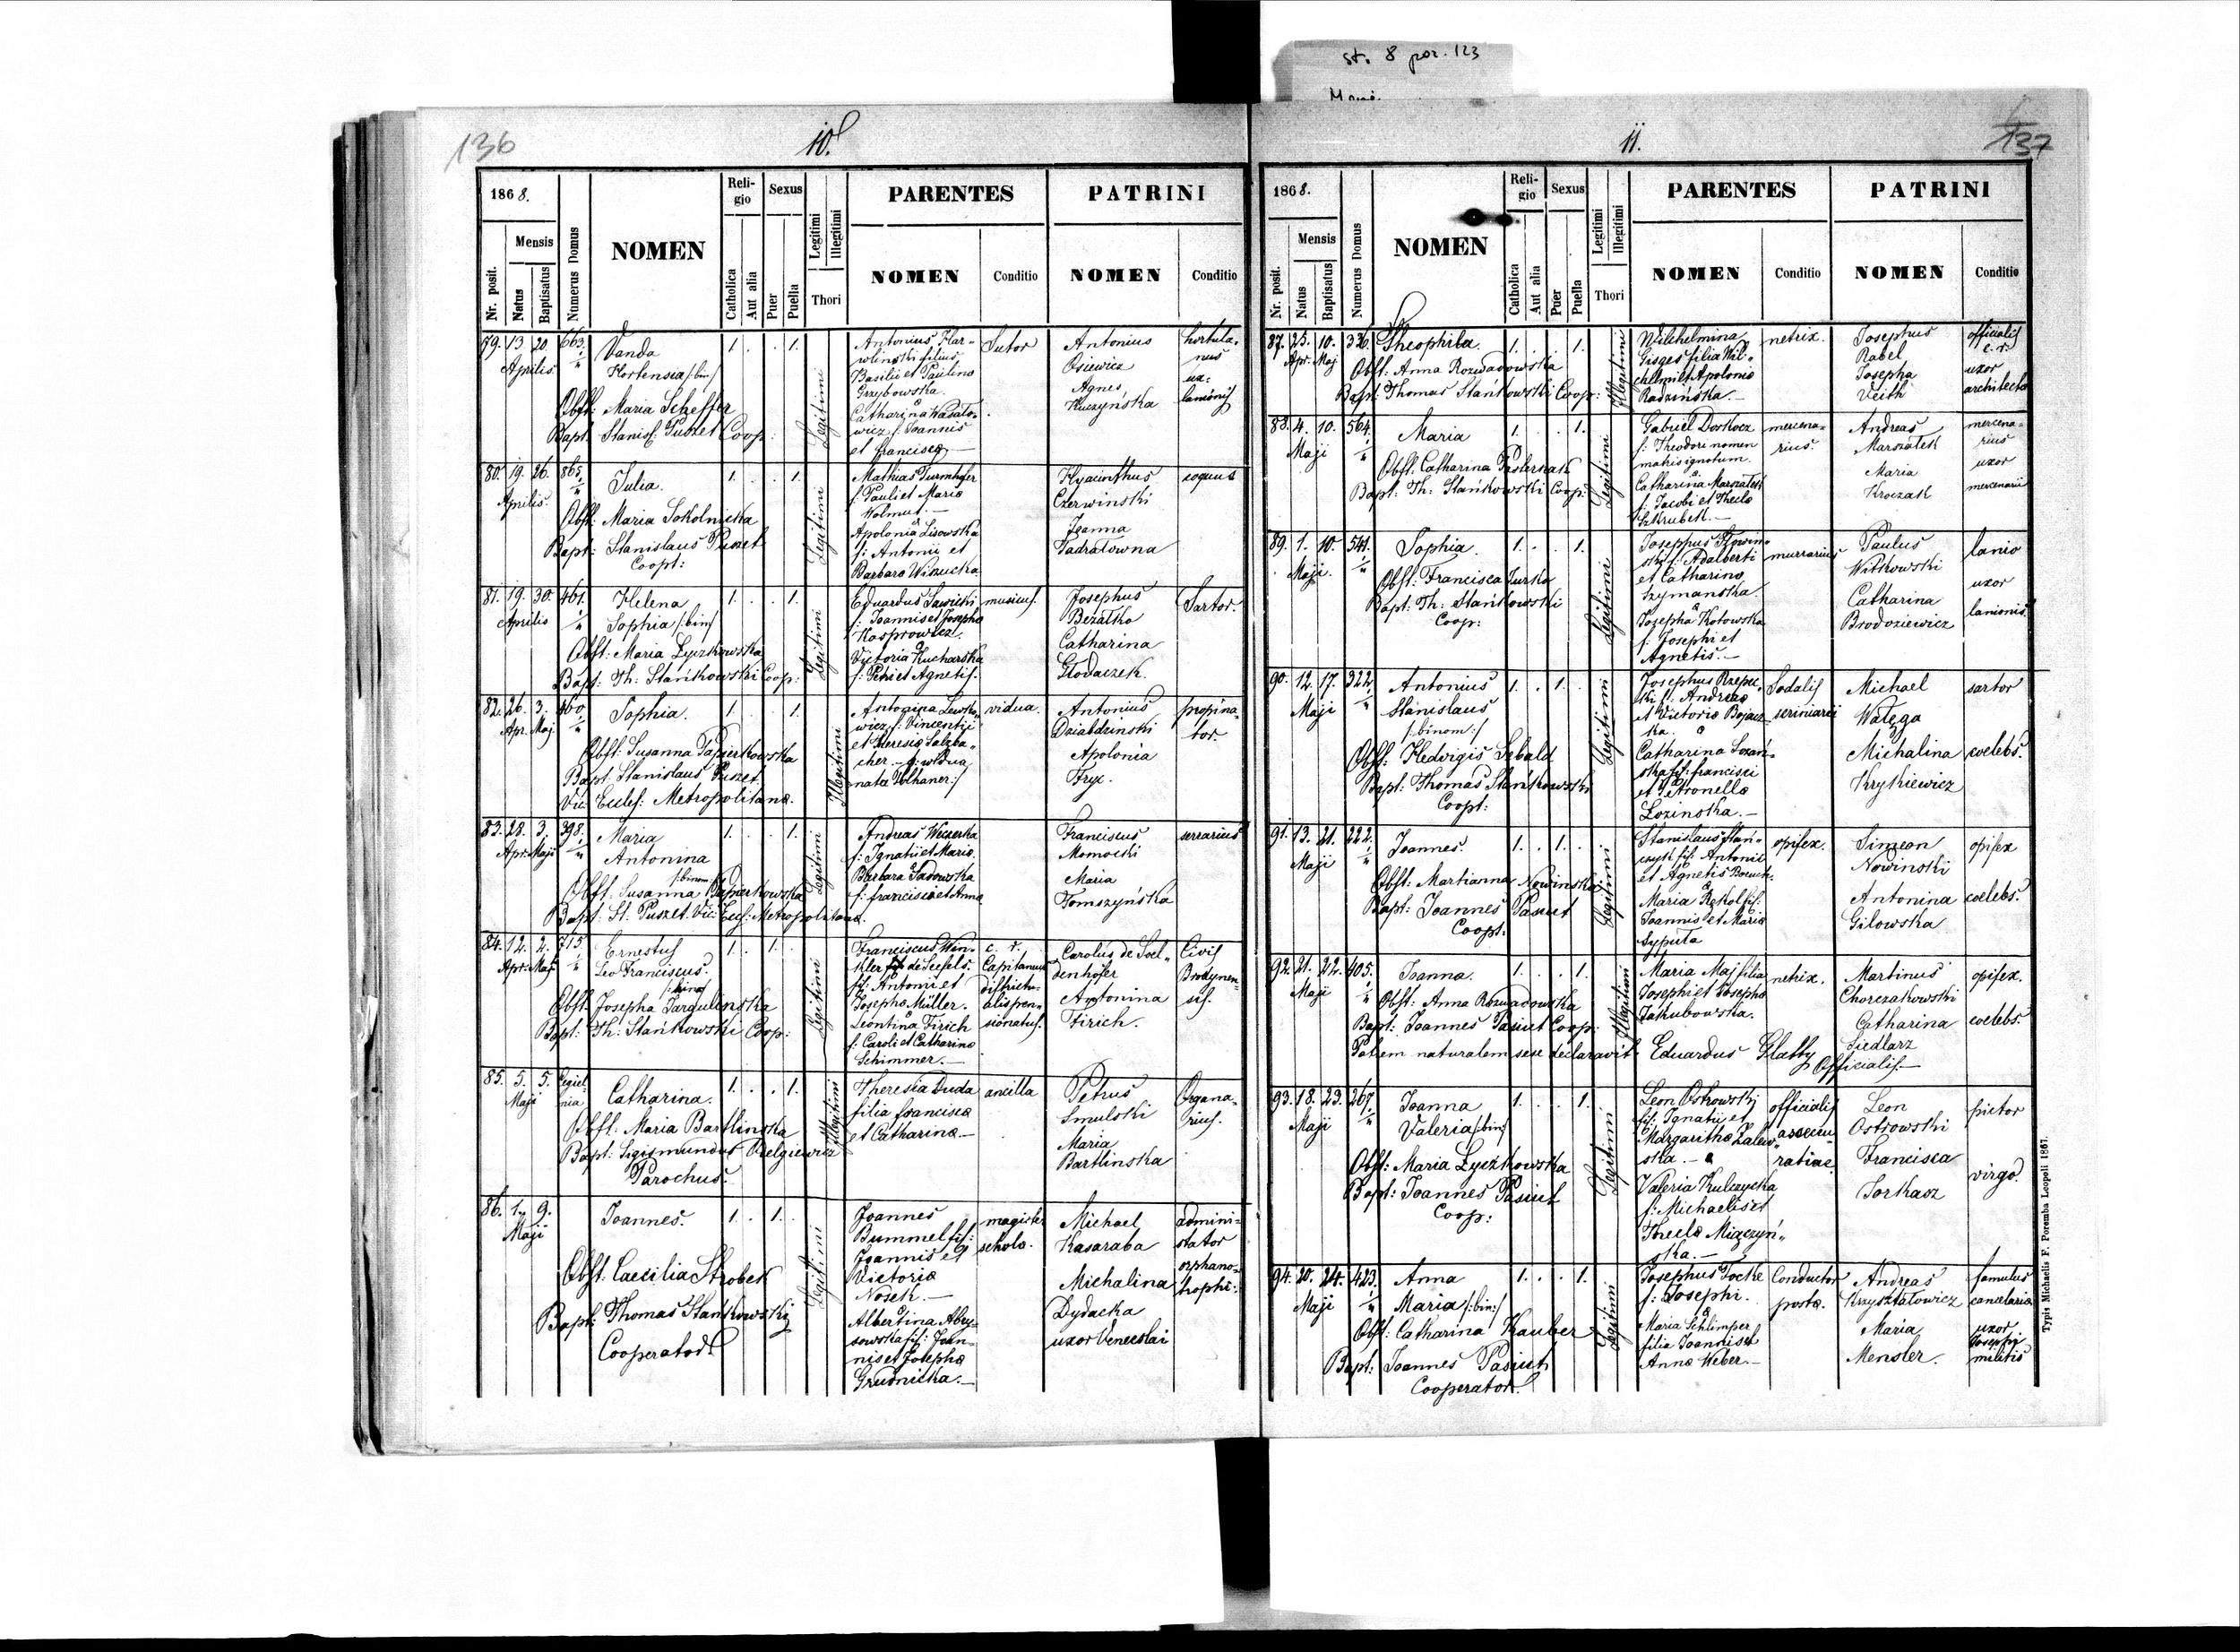 st. 8 por. 123
136
10.
1868.
Nr. posit.
Mensis
Natus
Baptisatus
Numerus Domus
NOMEN
Reli-
gio
Catholica
Aut alia
Sexus
Puer
Puella
Legitimi
Illegitimi
Thori
PARENTES
NOMEN
Conditio
PATRINI
NOMEN
Conditio
79. 13 20 663.
Aprilis
Vanda
Hortensia /:bin:/
Obst: Maria Scheffer
Bapt. Stanisl: Puszet Coop:
1. . . 1.
Legitimi
Antonius Kar-
wlinski filius
Basilii et Paulina
Grzybowska.
&
Catharina Wasato-
wicz f: Joannis
et Francisca
Sutor
Antonius
Osiewicz
Agnes
Kuczyńska
hortula-
nus
ux:
lanionis
80. 19. 26. 865.
Aprilis.
Julia.
Obst: Maria Sokolnicka
Bapt: Stanislaus Puszet
Coopt:
1. . . 1.
Legitimi
Mathias Turmhofer
f: Pauli et Maria
Wolmut. —
&
Apolonia Lisowska
f: Antonii et
Barbara Wisucka
Hyacinthus
Czerwinski
Joanna
Tadratowna
coquus
81. 19. 30. 461.
Aprilis
Helena
Sophia /:bin:/
Obst: Maria Lyczkowska
Bapt: Th: Stańkowski Coop:
1. . . 1.
Legitimi
Eduardus Sawicki
f: Joannis et Josepha
Kasprowicz.
&
Victoria Kucharska
f: Petri et Agnetis.
musicus.
Josephus
Bezatko
Catharina
Głodaczek.
Sartor
82. 26. 3. 460.
Apr. Maj.
Sophia.
Obst: Susanna Papierkowska
Bapt. Stanislaus Puszet.
Vic: Eccles: Metropolitana.
1. . . 1.
Illegitimi
Antonina Lewko-
wicz f: Vincentii
et Theresia Salzba-
cher
vidua.
Antonius
Dziabdzinski
Apolonia
Fryc.
propina-
tor.
83. 28. 3. 398.
Apr. Maji
Maria
Antonina
/:binom:/
Obst: Susanna Papierkowska
Bapt: St. Puszet. Vic: Eccl: Metropolitana.
1. . . 1.
Legitimi
Andreas Weczerka
f: Ignatii et Maria.
Barbara Sadowska
f: Francisci et Anna
Franciscus
Momocki
Maria
Tomszyńska
serrarius
84. 12. 2. 715.
Apr. Maj.
Ernestus
Leo Franciscus.
/:bin:/
Obst: Josepha Targulinska
Bapt: Th: Stańkowski Coop:
1. . 1. .
Legitimi
Franciscus Win-
kler de Seefels.
fil: Antoni et
Josepha Müller.
&
Leontina Firich
f: Caroli et Catharina
Schimmer. —
c. r.
Capitaneus
districtu-
alis pen-
sionatus.
Carolus de Soel-
denhofer
Antonina
Firich.
Civis
Brodynen-
sis.
85. 5. 5. Cegiel-
nia
Maji
Catharina.
Obst: Maria Bartlinska
Bapt: Sigismundus Odelgiewicz
Parochus.
1. . . 1.
Illegitimi
Theresia Duda
filia Francisca
et Catharina. —
ancilla
Petrus
Smulski
Maria
Bartlinska
Organa-
rius.
86. 1. 9.
Maji
Joannes.
Obst. Caecilia Strobek
Bapt: Thomas Stańkowski
Cooperator.
1. . 1. .
Legitimi
Joannes
Bummel fil:
Joannis et
Victoria
Nosek. —
&
Albertina Abry-
sowska fil: Joan-
nis et Josepha
Grudnicka. —
magister
schola.
Michael
Kasaraba
Michalina
Dydacka
uxor Venceslai
admini-
strator
orphano-
trophi:
137
11.
1868.
Nr. posit.
Mensis
Natus
Baptisatus
Numerus Domus
NOMEN
Reli-
gio
Catholica
Aut alia
Sexus
Puer
Puella
Legitimi
Illegitimi
Thori
PARENTES
NOMEN
Conditio
PATRINI
NOMEN
Conditio
87. 25. 10. 336.
Apr. Maj
Theophila.
Obst: Anna Rozwadowska
Bapt: Thomas Stańkowski Coop:
1. . . 1.
Illegitimi
Wilhelmina
Gisges filia Wil-
helmi et Apolonia
Radzińska. —
netrix.
Josephus
Rabel
Josepha
Veith
officialis
c. r.
uxor
architecta
88. 4. 10. 564.
Maji
Maria
Obst. Catharina Pasternak
Bapt: Th: Stańkowski Coop:
1. . . 1.
Legitimi
Gabriel Doskocz
f: Theodori nomen
matris ignotum.
&
Catharina Marszałek
f: Jacobi et Thecla
Szkrubek. —
mercena-
rius.
Andreas
Marszałek
Maria
Kroczak
mercena-
rius
uxor
mercenarii
89. 1. 10. 541.
Maji.
Sophia.
Obst: Francisca Turka
Bapt: Th: Stańkowski
Coop:
1. . . 1.
Legitimi
Adalberti
et Catharina
Szymanska.
&
Josepha Kotowska
f: Josephi et
Agnetis. —
murrarius
Paulus
Witkowski
Catharina
Brodoziewicz
lanio
uxor
lanionis
90. 12. 17. 322.
Maji
Antonius
Stanislaus
/:binom:/
Obst: Hedvigis Sebald
Bapt: Thomas Stańkowski
Coopt:
1. . 1. .
Legitimi
Josephus Rzepec-
ki f: Andrea
et Victoria Bojacz-
ka. &
Catharina Lozań-
ska fil: Francisci
et Petronella
Lozinska. —
Sodalis
scriniarii
Michael
Wałęga
Michalina
Krykiewicz
sartor
coelebs.
91. 13. 21. 222.
Maji
Joannes.
Obst: Martianna Nowinska
Bapt: Joannes Pasiut
Coopt:
1. . 1. .
Legitimi
Stanislaus Stań-
czyk fil: Antonii
et Agnetis
&
Maria Rękol fil:
Joannis et Maria
Sypuła
opifex.
Simeon
Nowinski
Antonina
Gilowska
opifex
coelebs.
92. 21. 22. 405.
Maji
Joanna.
Obst: Anna Rozwadowska
Bapt: Joannes Pasiut Coop:
Patrem naturalem sese declaravit Eduardus Glatty Officialis. —
1. . . 1.
Illegitimi
Maria Maj filia
Josephi et Josepha
Jakubowska.
netrix.
Martinus
Chorczakowski
Catharina
Siedlarz
opifex.
coelebs.
93. 18. 23. 267.
Maji
Joanna
Valeria /:bin:/
Obst: Maria Lyczkowska
Bapt: Joannes Pasiut
Coop:
1. . . 1.
Legitimi
Leon Ostrowski
fil: Ignatii et
Margaritha Zalew-
ska. — &
Valeria Kulczycka
f: Michaelis et
Thecla Migczyń-
ska. —
officialis
assecu
ratiae
Leon
Ostrowski
Francisca
Torkacz
pictor
virgo.
94. 20. 24. 423.
Maji
Anna
Maria /:bin:/
Obst: Catharina Kauber
Bapt: Joannes Pasiut
Cooperator.
1. . . 1.
Legitimi
Josephus Focke
f: Josephi.
&
Maria Schlimper
filia Joannis et
Anna Weber. —
Conductor
posta.
Andreas
Krzysztalowicz
Maria
Mensler.
famulus
cancelaria
uxor
Josephi
militis
Typis Michaelis F. Poremba Leopoli 1867.